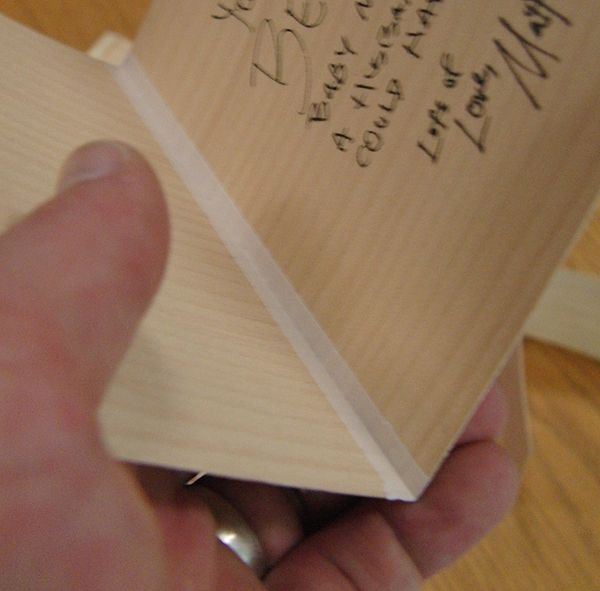 Yo
BE
BABY
A HUSBA
COULD HA
LOTS OF
LOVE,
Mary